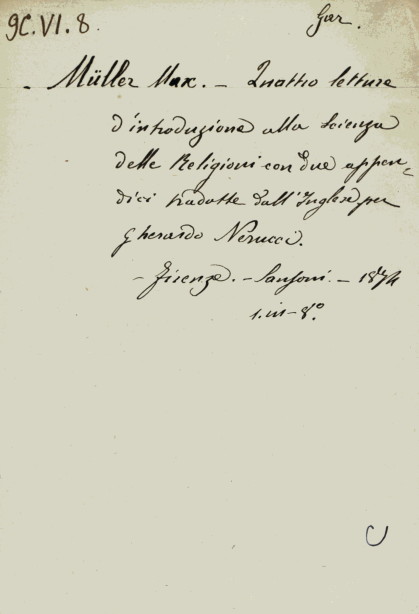 9C.VI.8.
Gar.
- Müller Max. - Quattro letture
d'introduzione alla Scienza
delle Religioni con due appen=
dici tradotte dall'Inglese per
Gherardo Nerucci.
- Firenze. - Sansoni. - 1874
1. in - 8.°
C